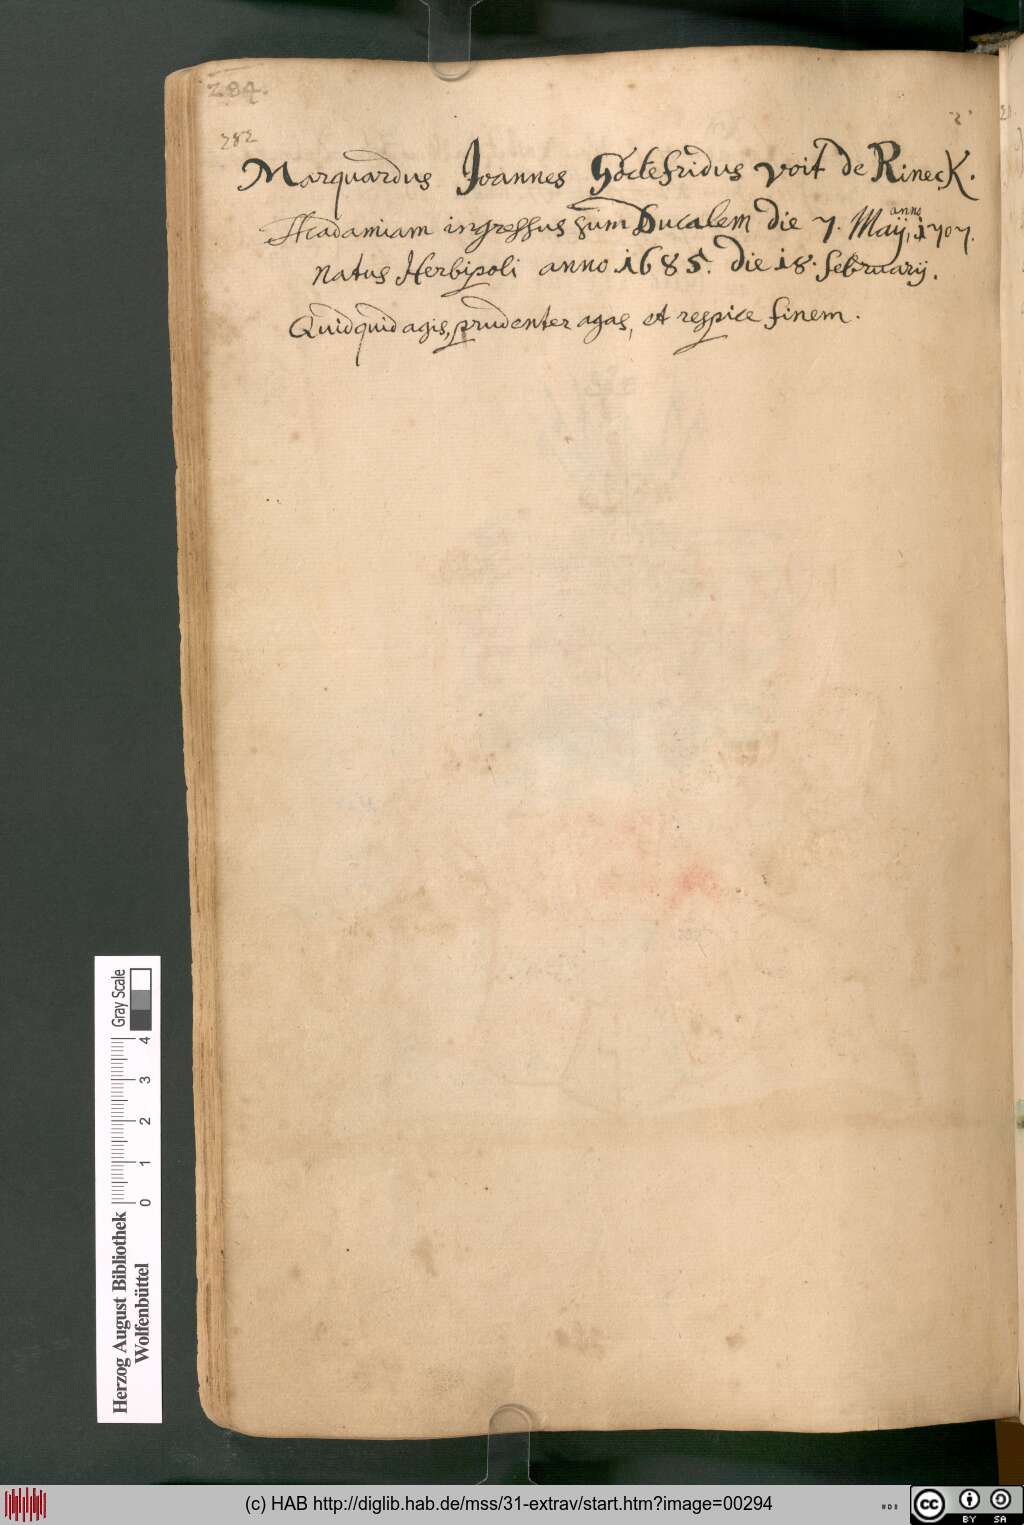 284.
282
Marquardus Joannes Godefridus voit de Rineck.
Acadamiam ingressus sum Ducalem die 7. Maij, anno 1707.
natus Herbipoli anno 1685. die 18. februarij.
Quidquid agis, prudenter agas, et respice finem.
Gray Scale
0 1 2 3 4
Herzog August Bibliothek
Wolfenbüttel
(c) HAB http://diglib.hab.de/mss/31-extrav/start.htm?image=00294
cc BY SA